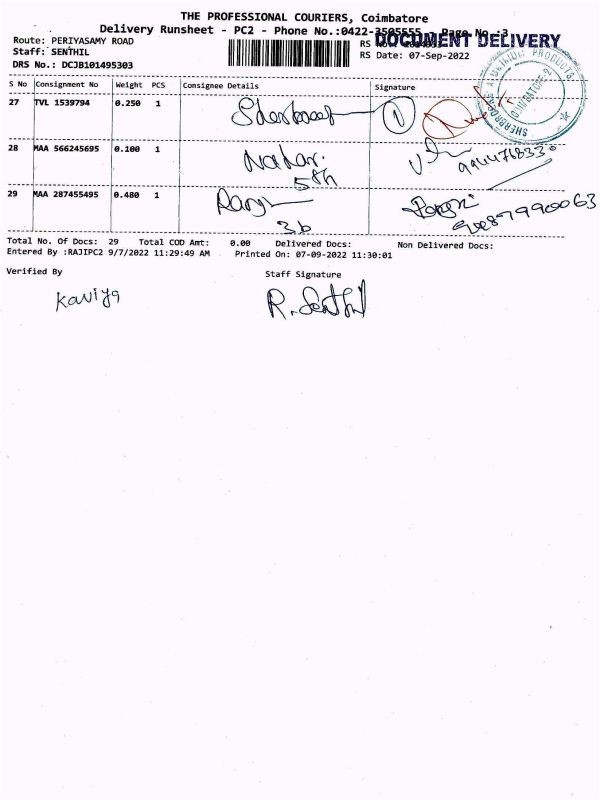 THE PROFESSIONAL COURIERS, Coimbatore
Delivery Runsheet - PC2 - Phone No.:0422-3505555 Page No.:3
Route: PERIYASAMY ROAD
DOCUMENT DELIVERY
Staff: SENTHIL
RS Date: 07-Sep-2022
DRS No.: DCJB101495303
S No Consignment No Weight PCS Consignee Details Signature
27 TVL 1539794 0.250 1
28 MAA 566245695 0.100 1
5th
29 MAA 287455495 0.480 1
3b
Total No. Of Docs: 29 Total COD Amt: 0.00 Delivered Docs: Non Delivered Docs:
Entered By :RAJIPC2 9/7/2022 11:29:49 AM Printed On: 07-09-2022 11:30:01
Verified By Staff Signature
Kaviya R. Senthil